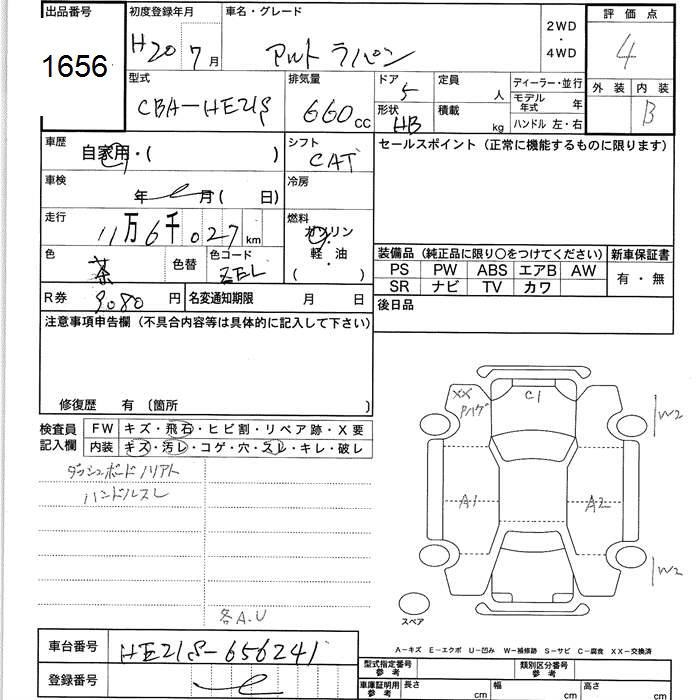 出品番号 初度登録年月 車名・グレード 2WD・4WD 評価点
1656 H20 7月 アルト ラパン 4
型式 排気量 ドア 定員 ディーラー・並行 外装 内装
CBA-HE21S 660cc 5 人 モデル年式 年 B
形状 HB 積載 kg ハンドル 左・右
車歴 自家用・( ) シフト CAT セールスポイント (正常に機能するものに限ります)
車検 年 月 ( 日) 冷房
走行 11万6千027km 燃料 ガソリン 軽・油 ( )
色 茶 色替 色コード ZEL 装備品 (純正品に限り○をつけてください) 新車保証書
PS PW ABS エアB AW 有・無
SR ナビ TV カワ
R券 9080円 名変通知期限 月 日 後日品
注意事項申告欄 (不具合内容等は具体的に記入して下さい)
修復歴 有 〔箇所 〕
検査員記入欄 FW キズ・飛石・ヒビ割・リペア跡・X要
内装 キズ・汚レ・コゲ・穴・スレ・キレ・破レ
ダッシュボードノリアト
ハンドルスレ
各A.U
XX
C1
W2
A1
A2
W2
スペア
A-キズ E-エクボ U-凹み W-補修跡 S-サビ C-腐食 XX-交換済
車台番号 HE21S-656241
登録番号
型式指定番号 参考 類別区分番号 参考
車庫証明用 参考 長さ cm 幅 cm 高さ cm